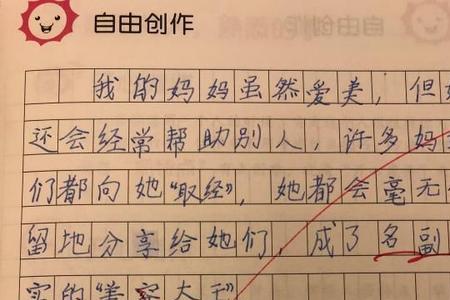 自由创作
我的妈妈虽然爱美，但
还会经常帮助别人，许多妈
们都向她“取经”，她都会毫无
留地分享给她们，成了名副
实的“美容大王”